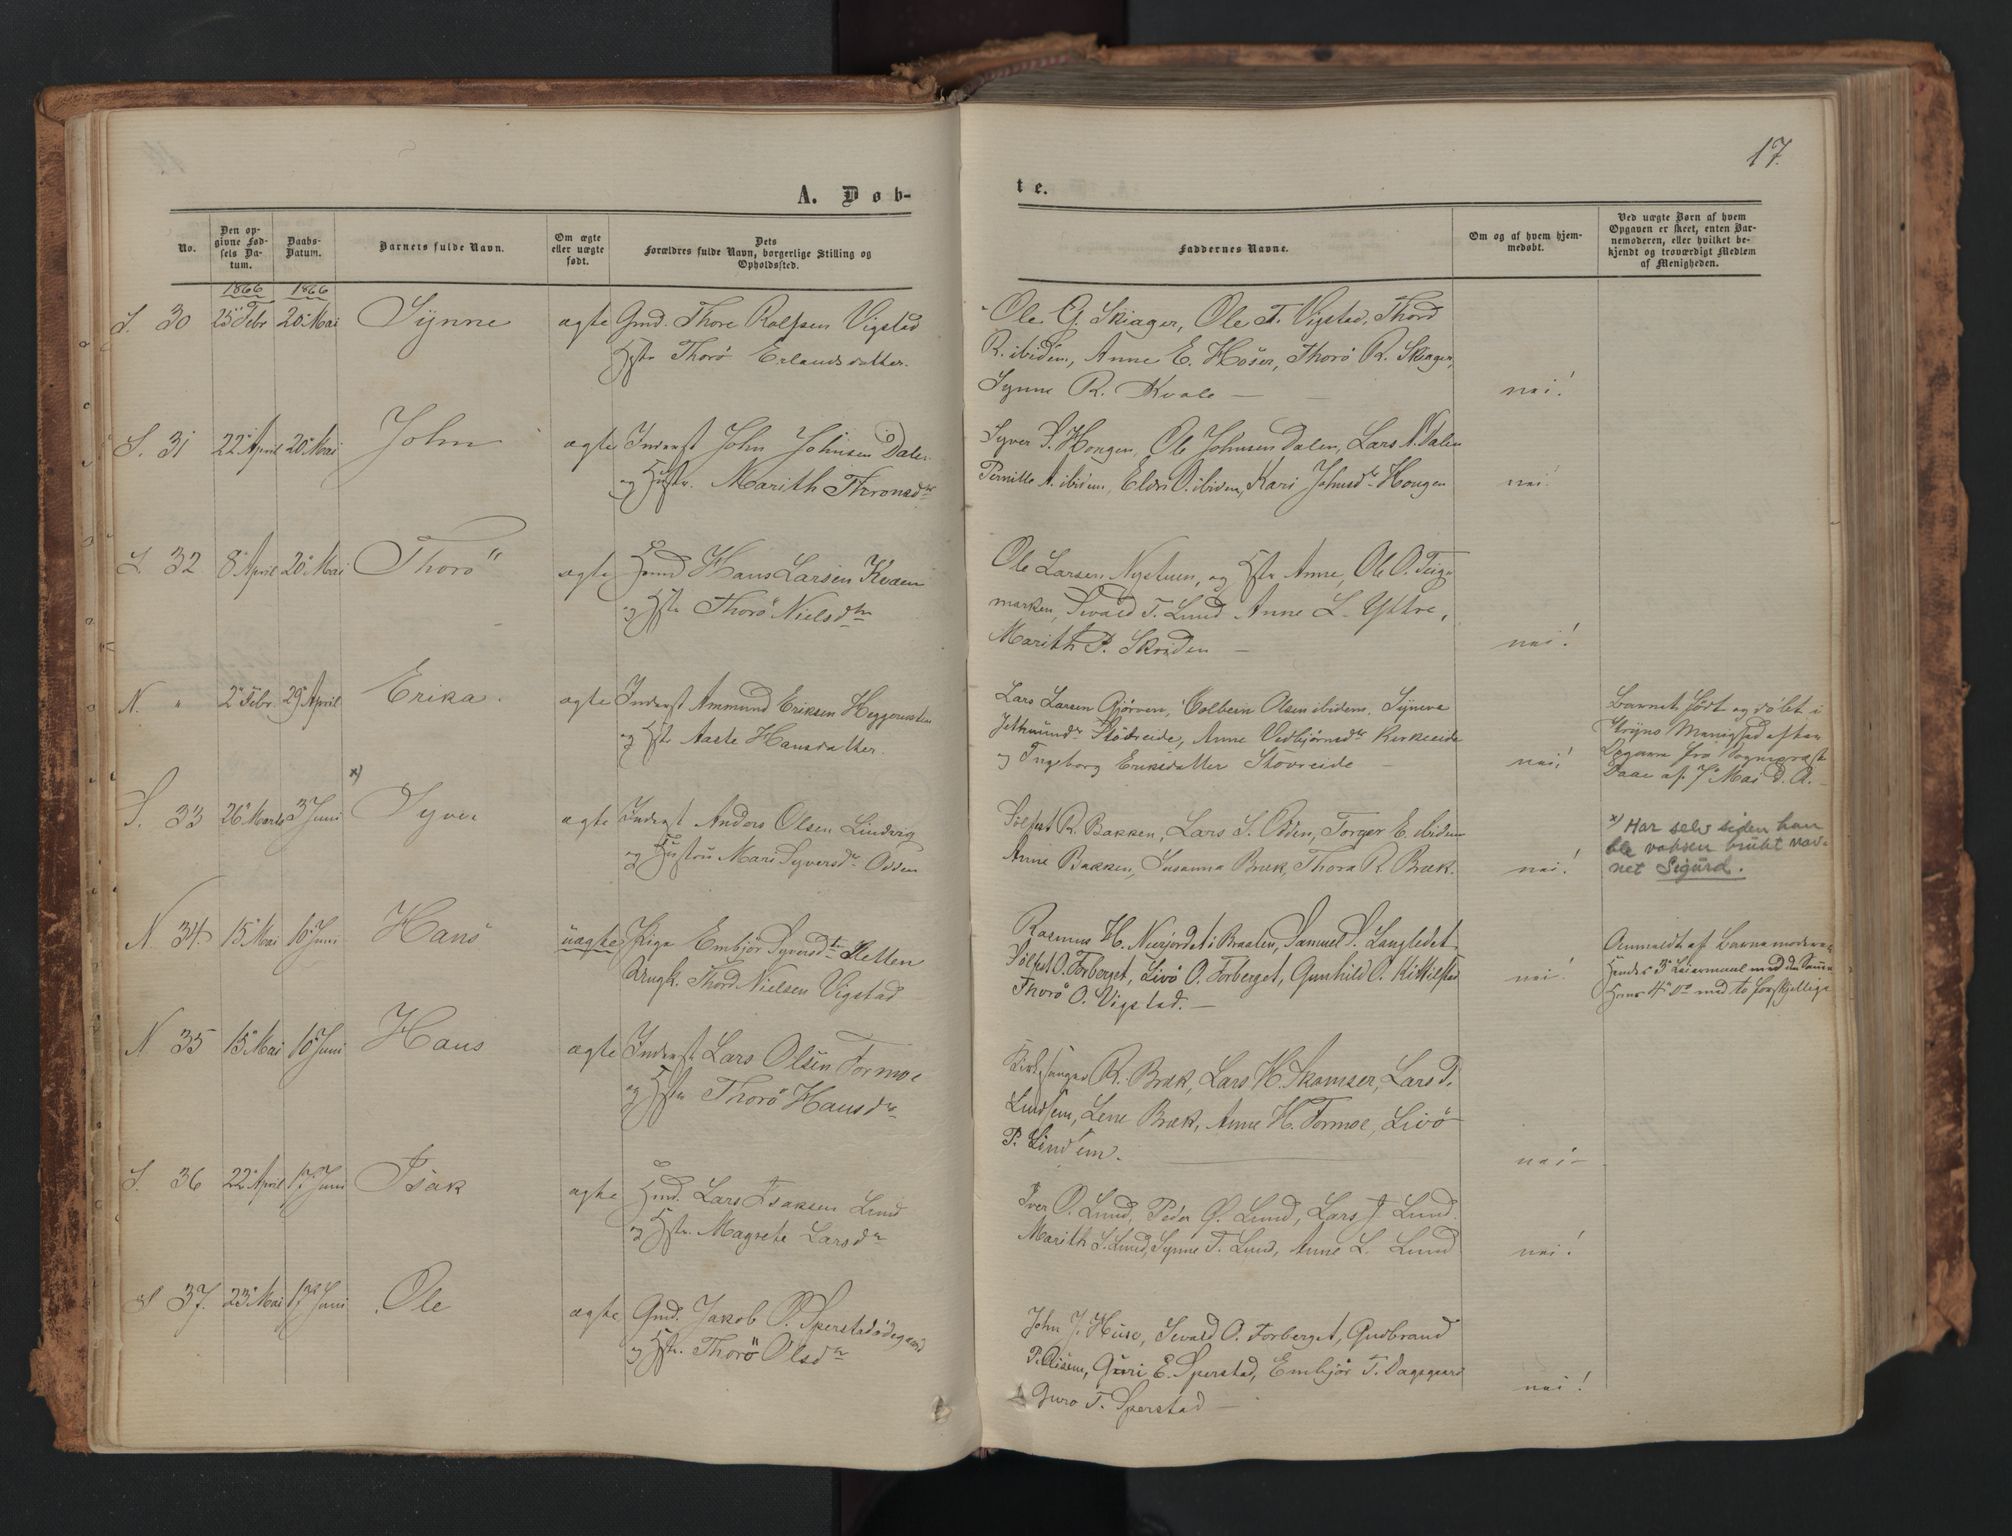 17.
A. Døb-
te.
No.
Den op-
givne Fød-
sels Da-
tum.
Daabs-
Datum.
Barnets fulde Navn.
Om ægte
eller uægte
født.
Dets
Forældres fulde Navn, borgerlige Stilling og
Opholdssted.
Faddernes Navne.
Om og af hvem hjem-
medøbt.
Ved uægte Børn af hvem
Opgaven er skeet, enten Bar-
nemoderen, eller hvilket be-
kjendt og troværdigt Medlem
af Menigheden.
1866 1866
S. 30 25 Febr 20 Mai Synne ægte Gmd. Thore Rolfsen Vigstad
Hstr Thorø Erlandsdatter.
Ole G. Skiager, Ole T. Vigstad, Thord
R. ibidem, Anne E. Høser, Thorø R. Skiager,
Synne R. Kvale — nei!
S. 31 22 April 20 Mai John ægte Inderst John Johnsen Dalen
og Hustr. Marith Thronsdr
Syver S. Hougen, Ole Johnsen Dalen, Lars N. Dalen
Pernille A. ibidem, Eldri O. ibidem, Kari Johnsdr Hougen nei!
S. 32 8 April 20 Mai Thorø ægte Hmd Hans Larsen Kvaen
og Hstr Thorø Nielsdtr
Ole Larsen Nystuen, og Hstr Anne, Ole O. Teig-
marken, Sivald T. Lund Anne L. Yttre,
Marith P. Skriden — nei!
N. " 2 Febr. 29 April Erika. ægte Inderst Ammund Eriksen
og Hstr Aaste Hansdatter.
Lars Larsen Gjørven, Colbein Olsen ibidem, Syneva
Jethmundr Støvreide, Anne Vidbjørnsdr Kirkeeide
og Ingeborg Eriksdatter Stovreide — nei!
Barnet født og døbt i
Stryns Menighed efter
Opgave fra Sognepræst
Daae af 7 Mai d. A.
S. 33 26 Marts 3 Juni x) Syver ægte Inderst Anders Olsen Lindvig
og Hustru Mari Syversdr Odden
Sølfest R. Bakken, Lars S. Odden, Torger E. ibidem
Anne Bakken, Susanna Bræk, Thora R. Bræk. nei!
x) Har selv siden han
ble voksen brukt nav-
net Sigurd.
N 34. 15 Mai 10 Juni Hans uægte Pige Embjør Syversdtr Sletten
Ungk. Thord Nielsen Vigstad
Rasmus H. Nersjordet i Braaten, Samuel S. Langledet
Sølfest O. Forberget, Livø O. Forberget, Gunhild O. Kittilstad
Thorø O. Vigstad. — nei!
Anmeldt af Barnemoderen
Hendes 3 Leiermaal med den Samme
Hans 4 do med to forskjellige
N 35 15 Mai 10 Juni Hans ægte Inderst Lars Olsen Formoe
og Hstr Thorø Hansdr
Kirkesanger R. Bræk, Lars H. Skamser, Lars d.
Lindsem, Lene Bræk, Anne H. Formoe, Livø
P. Lindsem. — nei —
S. 36 22 April 17 Juni Isak ægte Hmd. Lars Isaksen Lund
og Hstr. Magrete Larsdr
Iver O. Lund, Peder Ø. Lund, Lars J. Lund
Marith S. Lund, Synne T. Lund, Anne L. Lund nei!
S 37. 23 Mai 17 Juni Ole ægte Gmd. Jakob O. Sperstadødegaard
og Hstr. Thorø Olsdtr
John J. Huse, Sivald O. Forberget, Gudbrand
P. Guri E. Sperstad, Embjør T. Dagsgaard
Guro T. Sperstad — nei!